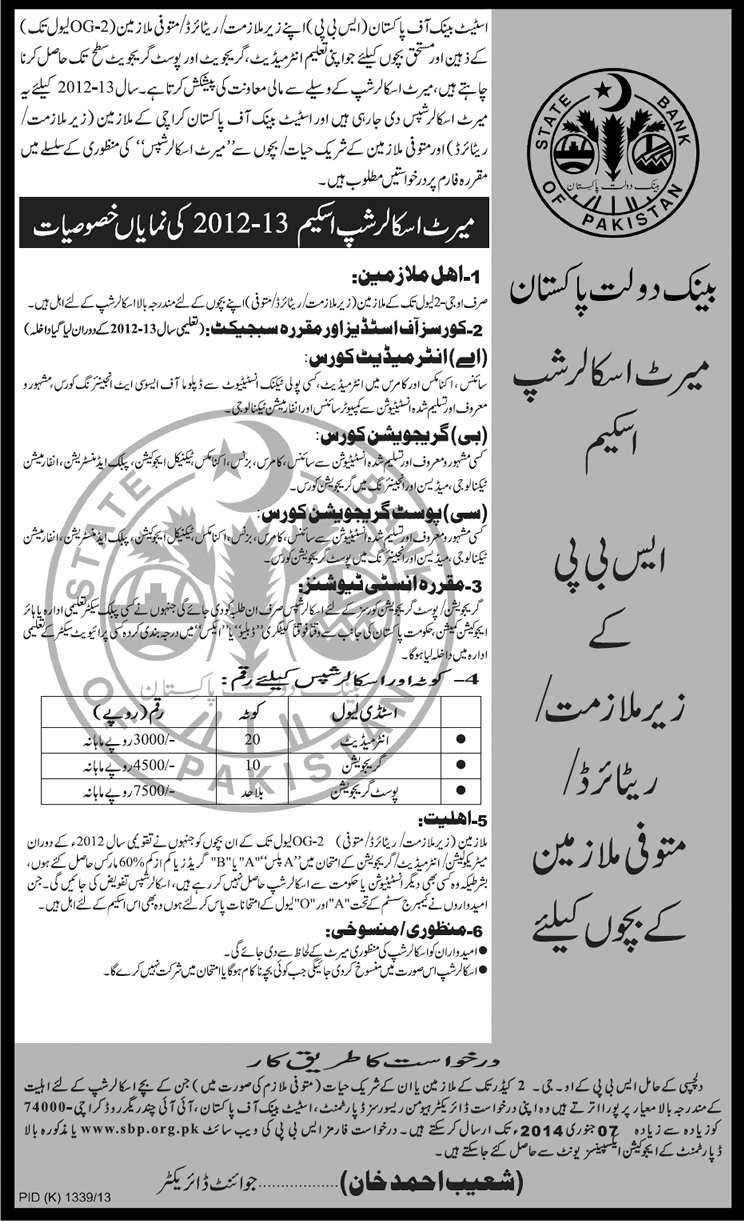 اسٹیٹ بینک آف پاکستان (ایس بی پی) اپنے زیر ملازمت/ریٹائرڈ/متوفی ملازمین (OG-2 لیول تک)
کے ذہین اور مستحق بچوں کیلئے جو اپنی تعلیم انٹرمیڈیٹ، گریجویٹ اور پوسٹ گریجویٹ سطح تک حاصل کرنا
چاہتے ہیں، میرٹ اسکالرشپ کے وسیلے سے مالی معاونت کی پیشکش کرتا ہے۔ سال 13-2012 کیلئے یہ
میرٹ اسکالرشپس دی جارہی ہیں اور اسٹیٹ بینک آف پاکستان کراچی کے ملازمین (زیر ملازمت/
ریٹائرڈ) اور متوفی ملازمین کے شریک حیات/بچوں سے "میرٹ اسکالرشپس" کی منظوری کے سلسلے میں
مقررہ فارم پر درخواستیں مطلوب ہیں۔
میرٹ اسکالرشپ اسکیم 13-2012 کی نمایاں خصوصیات
1-اھل ملازمین:
صرف او جی-2 لیول تک کے ملازمین (زیر ملازمت/ریٹائرڈ/متوفی) اپنے بچوں کے لئے مندرجہ بالا اسکالرشپ کے لئے اہل ہیں۔
2-کورسز آف اسٹڈیز اور مقررہ سبجیکٹ: (تعلیمی سال 13-2012 کے دوران لیا گیا داخلہ)
(اے) انٹرمیڈیٹ کورس:
سائنس، اکنامکس اور کامرس میں انٹرمیڈیٹ، کسی پولی ٹیکنک انسٹیٹیوٹ سے ڈپلوما آف ایسوسی ایٹ انجینئرنگ کورس، مشہور و
معروف اور تسلیم شدہ انسٹیٹیوشن سے کمپیوٹر سائنس اور انفارمیشن ٹیکنالوجی۔
(بی) گریجویشن کورس:
کسی مشہور و معروف اور تسلیم شدہ انسٹیٹیوشن سے سائنس، کامرس، بزنس، اکنامکس، ٹیکنیکل ایجوکیشن، پبلک ایڈمنسٹریشن، انفارمیشن
ٹیکنالوجی، میڈیسن اور انجینئرنگ میں گریجویشن کورس۔
(سی) پوسٹ گریجویشن کورس:
کسی مشہور و معروف اور تسلیم شدہ انسٹیٹیوشن سے سائنس، کامرس، بزنس، اکنامکس، ٹیکنیکل ایجوکیشن، پبلک ایڈمنسٹریشن، انفارمیشن
ٹیکنالوجی، میڈیسن اور انجینئرنگ میں پوسٹ گریجویشن کورس۔
3-مقررہ انسٹی ٹیوشنز:
گریجویشن/پوسٹ گریجویشن کورسز کے لئے اسکالرشپس صرف ان طلبہ کو دی جائے گی جنہوں نے کسی پبلک سیکٹر تعلیمی ادارہ یا ہائر
ایجوکیشن کمیشن، حکومت پاکستان کی جانب سے وقتاً فوقتاً کیٹگری "ڈبلیو" یا "ایکس" میں درجہ بندی کردہ کسی پرائیویٹ سیکٹر کے تعلیمی
ادارہ میں داخلہ لیا ہوگا۔
4- کوٹہ اور اسکالرشپس کیلئے رقم:
اسٹڈی لیول کوٹہ رقم (روپے)
● انٹرمیڈیٹ 20 3000/- روپے ماہانہ
● گریجویشن 10 4500/- روپے ماہانہ
● پوسٹ گریجویشن بلاحد 7500/- روپے ماہانہ
5-اھلیت:
ملازمین (زیر ملازمت/ریٹائرڈ/متوفی) OG-2 لیول تک کے ان بچوں کو جنہوں نے تقویمی سال 2012ء کے دوران
میٹرکولیشن/انٹرمیڈیٹ/گریجویشن کے امتحان میں "A پلس" "A" یا "B" گریڈز یا کم از کم 60% مارکس حاصل کئے ہوں،
بشرطیکہ وہ کسی بھی دیگر انسٹیٹیوشن یا حکومت سے اسکالرشپ حاصل نہیں کر رہے ہیں، اسکالرشپس تفویض کی جائیں گی۔ جن
امیدواروں نے کیمبرج سسٹم کے تحت "A" اور "O" لیول کے امتحانات پاس کرلئے ہوں وہ بھی اس اسکیم کے لئے اہل ہیں۔
6-منظوری/منسوخی:
● امیدواران کو اسکالرشپ کی منظوری میرٹ کے لحاظ سے دی جائے گی۔
● اسکالرشپ اس صورت میں منسوخ کردی جائیگی جب کوئی بچہ ناکام ہوگا یا امتحان میں شرکت نہیں کرے گا۔
STATE BANK OF PAKISTAN
بینک دولت پاکستان
بینک دولت پاکستان
میرٹ اسکالرشپ
اسکیم
ایس بی پی
کے
زیر ملازمت/
ریٹائرڈ/
متوفی ملازمین
کے بچوں کیلئے
STATE BANK OF PAKISTAN
بینک دولت پاکستان
درخواست کا طریق کار
دلچسپی کے حامل ایس بی پی کے او۔جی۔ 2 کیڈر تک کے ملازمین یا ان کے شریک حیات (متوفی ملازم کی صورت میں) جن کے بچے اسکالرشپ کے لئے اہلیت
کے مندرجہ بالا معیار پر پورا اترتے ہیں وہ اپنی درخواست ڈائریکٹر ہیومن ریسورسز ڈپارٹمنٹ، اسٹیٹ بینک آف پاکستان، آئی آئی چندریگر روڈ کراچی-74000
کو زیادہ سے زیادہ 07 جنوری 2014ء تک ارسال کرسکتے ہیں۔ درخواست فارمز ایس بی پی کی ویب سائٹ www.sbp.org.pk یا مذکورہ بالا
ڈپارٹمنٹ کے ایجوکیشن ایکسپینسز یونٹ سے حاصل کئے جاسکتے ہیں۔
(شعیب احمد خان)..............جوائنٹ ڈائریکٹر
PID (K) 1339/13